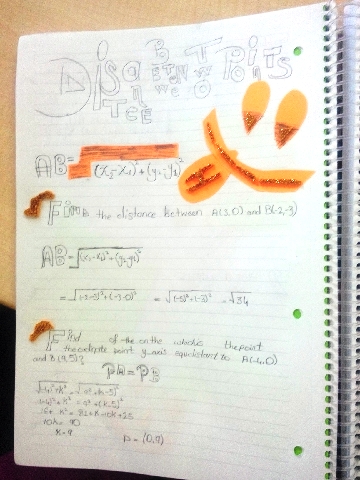 Distance Between Two Points
AB=√(x₂-x₁)²+(y₂-y₁)²
Find the distance between A(3,0) and B(-2,-3)
AB=√(x₂-x₁)²+(y₂-y₁)²
=√(-2-3)²+(-3-0)² =√(-5)²+(-3)² =√34
Find of the on the which is the point
the point y axis equidistant to A(-4,0)
and B(9,5)?
PA=PB
√(-4)²+k² =√9²+(k-5)²
(-4)²+k² = 9²+(k-5)²
16+ k² = 81+k²-10k+25
10k= 90
k=9
p = (0,9)